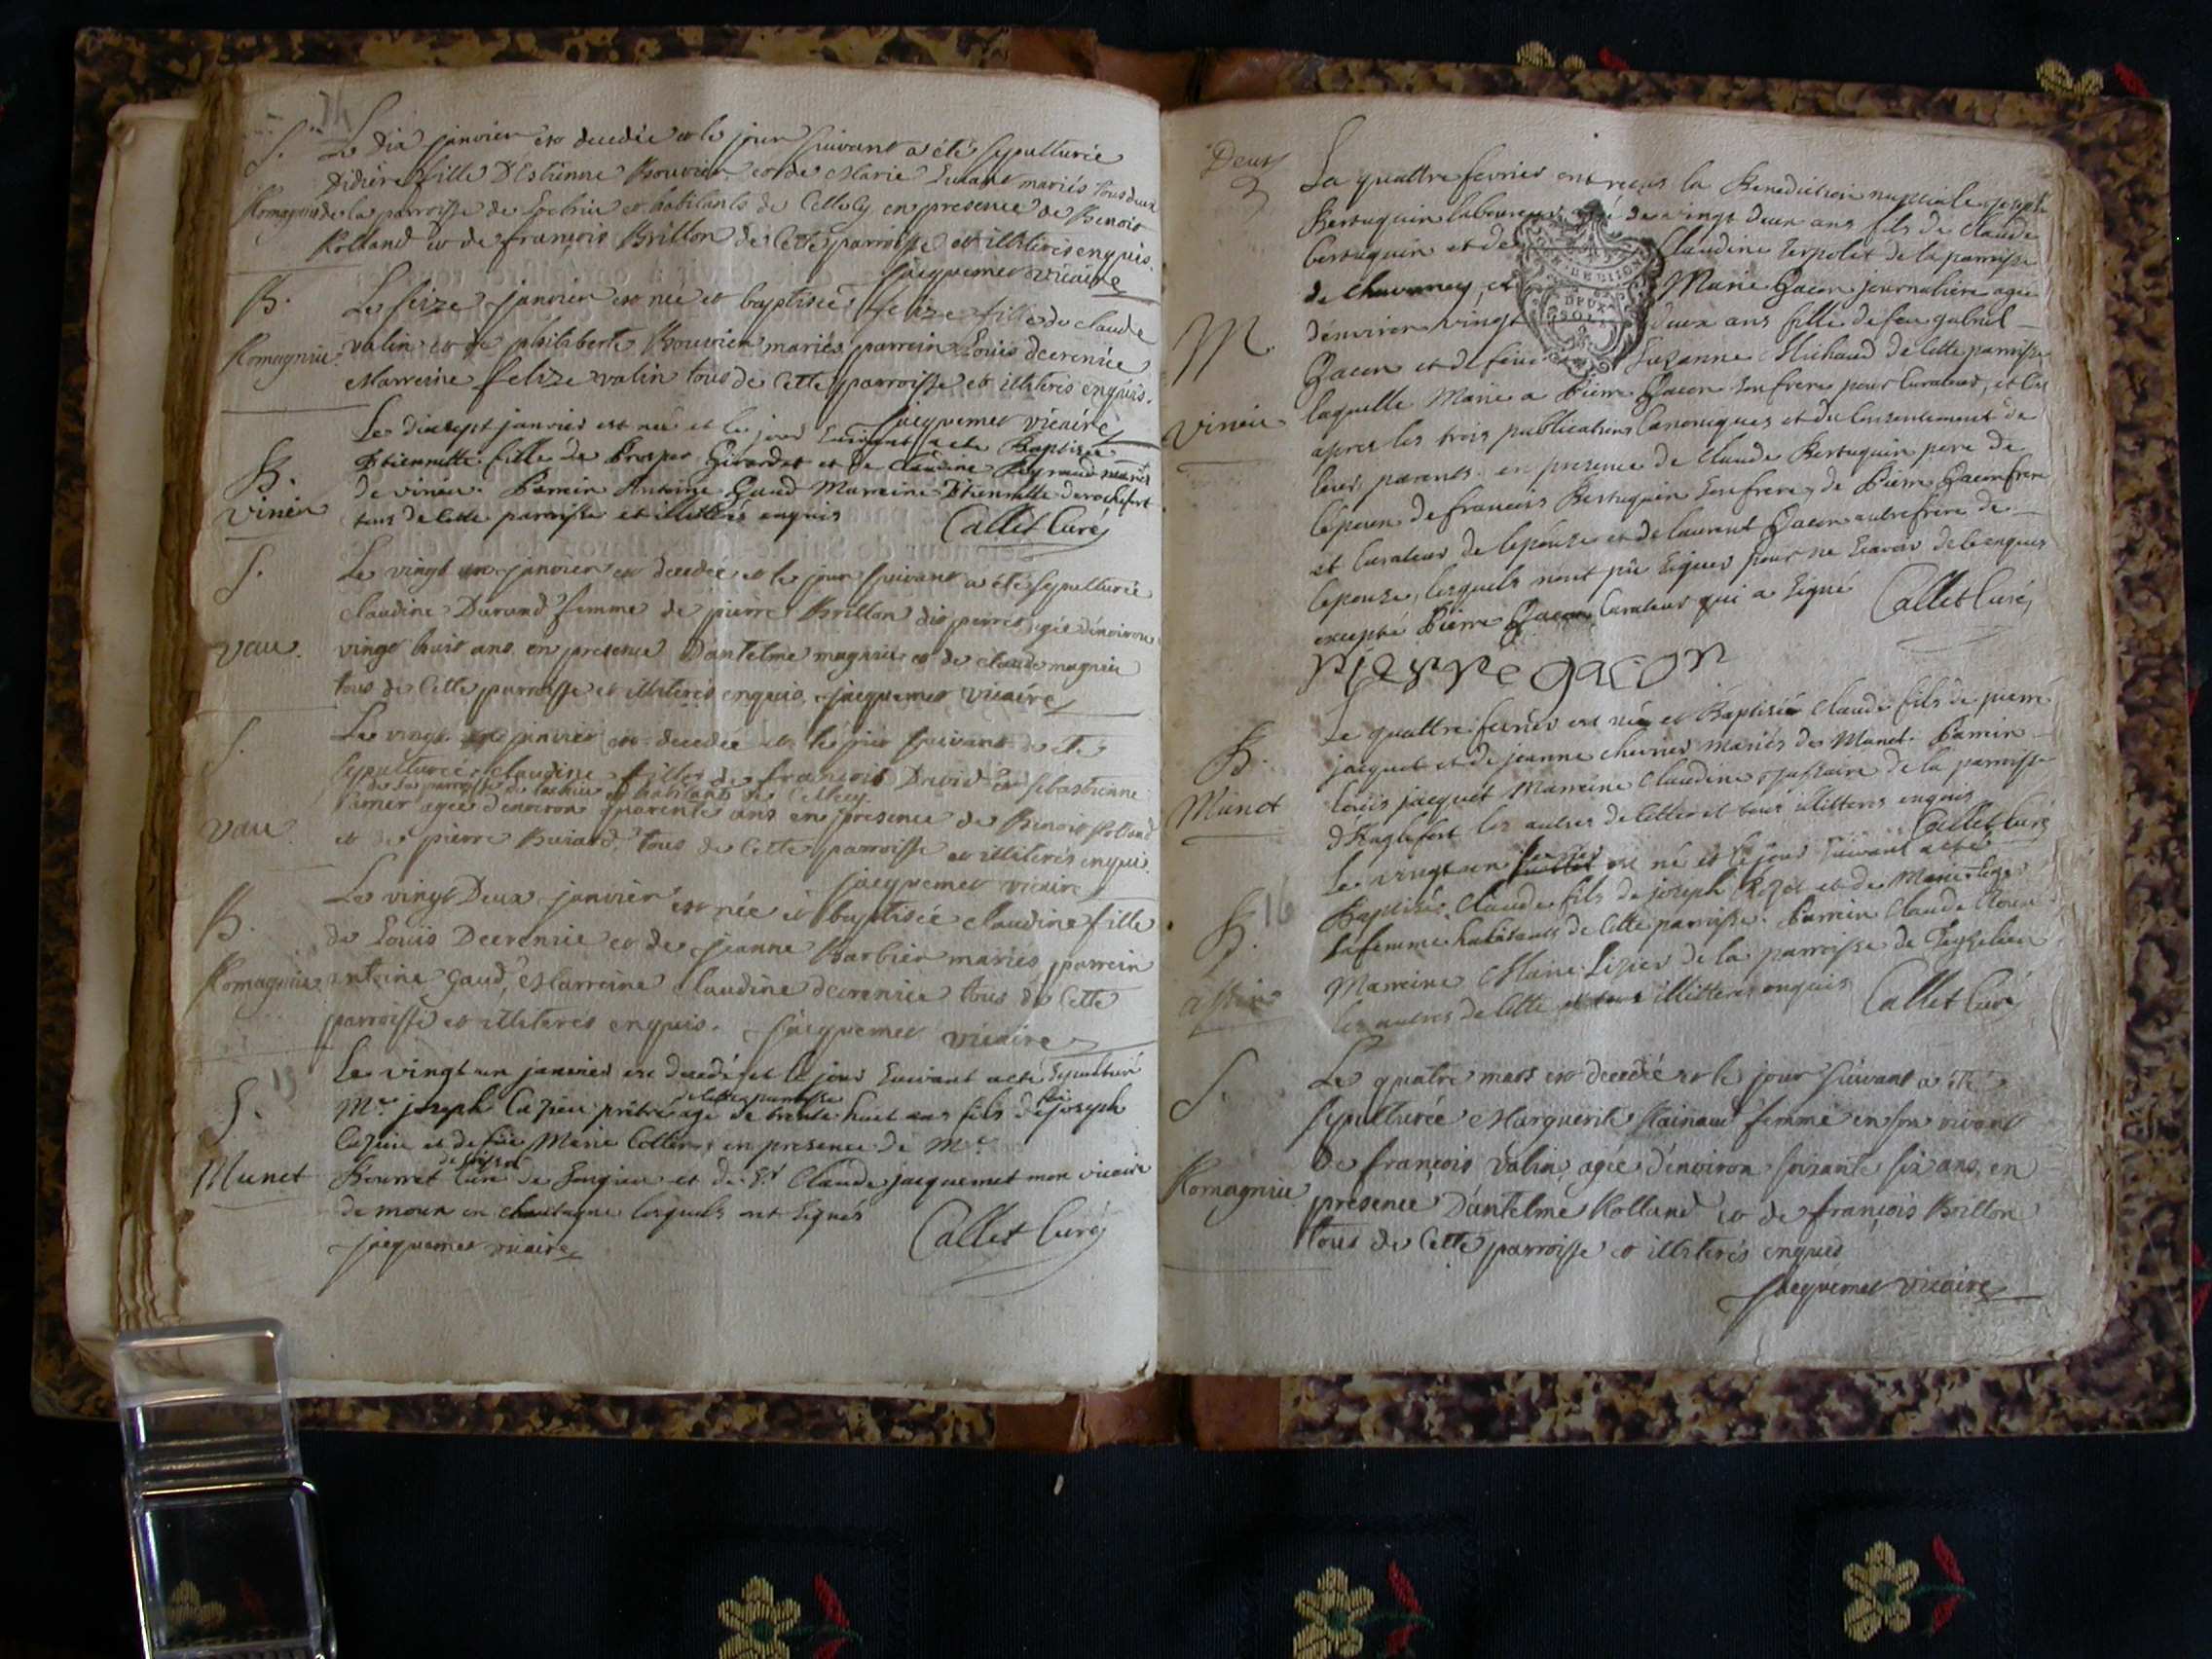 S.
Le Dix janvier est decedée et le jour suivant a été sepulturée
Didière fille D'Estienne Bouvier et de Marie mariés tous deux
Romagnieu de la parroisse de Lochieu et habitants de en presence de Benoit
Rolland et de françois Brillon de Cette parroisse et illiterés enquis.
jacquemet vicaire
B.
Le seize janvier est née et baptisée felize fille de claude
Romagnieu
valin et de philiberte Bouvier mariés parrein Louis decrenice
Marreine felize valin tous de Cette parroisse et illiterés enquis.
jacquemet vicaire
Le dixsept janvier est née et le jour Suivant a été Baptisée
B.
Etiennette fille de Prosper Girardet et de Claudine Reynaud mariés
vinieu
de vinieu. Parrein Antoine Gaud Marreine Etiennette derochefort
tous de Cette parroisse et illitterés enquis Callet Curé
S.
Le vingt un janvier est decedée et le jour suivant a été sepulturée
claudine Durand femme de pierre Brillon dit perret agée d'environ
vau.
vingt huit ans en presence D'antelme magnieu et de claude magnieu
tous de Cette parroisse et illiterés enquis. jacquemet vicaire
S.
Le vingt un janvier est decedée et le jour suivant a été
sepulturée claudine fille de françois David et sebastienne
de la parroisse de lochieu et habitants de
vau
agée d'environ quarente ans en presence de Benoit Rolland
et de pierre tous de Cette parroisse et illiterés enquis.
jacquemet vicaire
B.
Le vingt Deux janvier est née et baptisée claudine fille
de Louis Decrenice et de jeanne Barbier mariés, parrein
Romagnieu
antoine gaud, Marreine claudine decrenice tous de Cette
parroisse et illiterés enquis. jacquemet vicaire
15
Le vingt un janvier est decedé, et le jour Suivant a été Sepulturé
S.
de Cette parroisse feu
Mre joseph prêtre agé de trente huit ans fils de joseph
et de feue Marie en presence de Mre
Munet
Bourret Curé de Songieu et de Sr Claude jacquemet mon vicaire
de moux en chautagne lesquels ont Signés
jacquemet vicaire Callet Curé
Deux
3
Le quattre fevrier ont reçus la Benediction nuptiale joseph
Bertuquin laboureur agé de vingt deux ans fils de Claude
bertuquin et de Claudine de la parroisse
de Chavannes, et Marie Gacon journaliere agée
M.
d'environ vingt deux ans fille de feu gabriel
Gacon et de feue Suzanne Michaud de Cette parroisse
vinieu
laquelle Marie a Pierre Gacon son frere pour Curateur, et Ce
apres les trois publications Canoniques et du Consentement de
leurs parents en presence de Claude Bertuquin pere de
l'époux de francois Bertuquin Son frere, de Pierre Gacon frere
et Curateur de l'epouse et de laurent Gacon autre frere de
l'epouse, lesquels n'ont pû Signer pour ne Scavoir de Ce enquis
excepté Pierre Gacon Curateur qui a Signé Callet Curé
pierre gacon
Le quattre fevrier est née et Baptisée Claude fils de pierre
B.
jacquet et de jeanne chevrier mariés de Munet. Parrein
Munet
louis jacquet Marreine Claudine de la parroisse
d'Anglefort les autres de Cette et tous illitterés enquis
Callet Curé
Le vingt un fevrier est né et le jour Suivant a été
B. 16
Baptisé Claude fils de joseph Rozet et de Marie
sa femme habitants de Cette parroisse. Parrein Claude
assin
Marreine Marie de la parroisse de
les autres de Cette et tous illitterés enquis Callet Curé
S.
Le quatre mars est decedée et le jour suivant a été
sepulturée Marguerite Rainaud femme en son vivant
Romagnieu
de françois valin, agée d'environ soixante six ans, en
presence D'antelme Rolland et de françois Brillon
tous de Cette parroisse et illiterés enquis
jacquemet vicaire